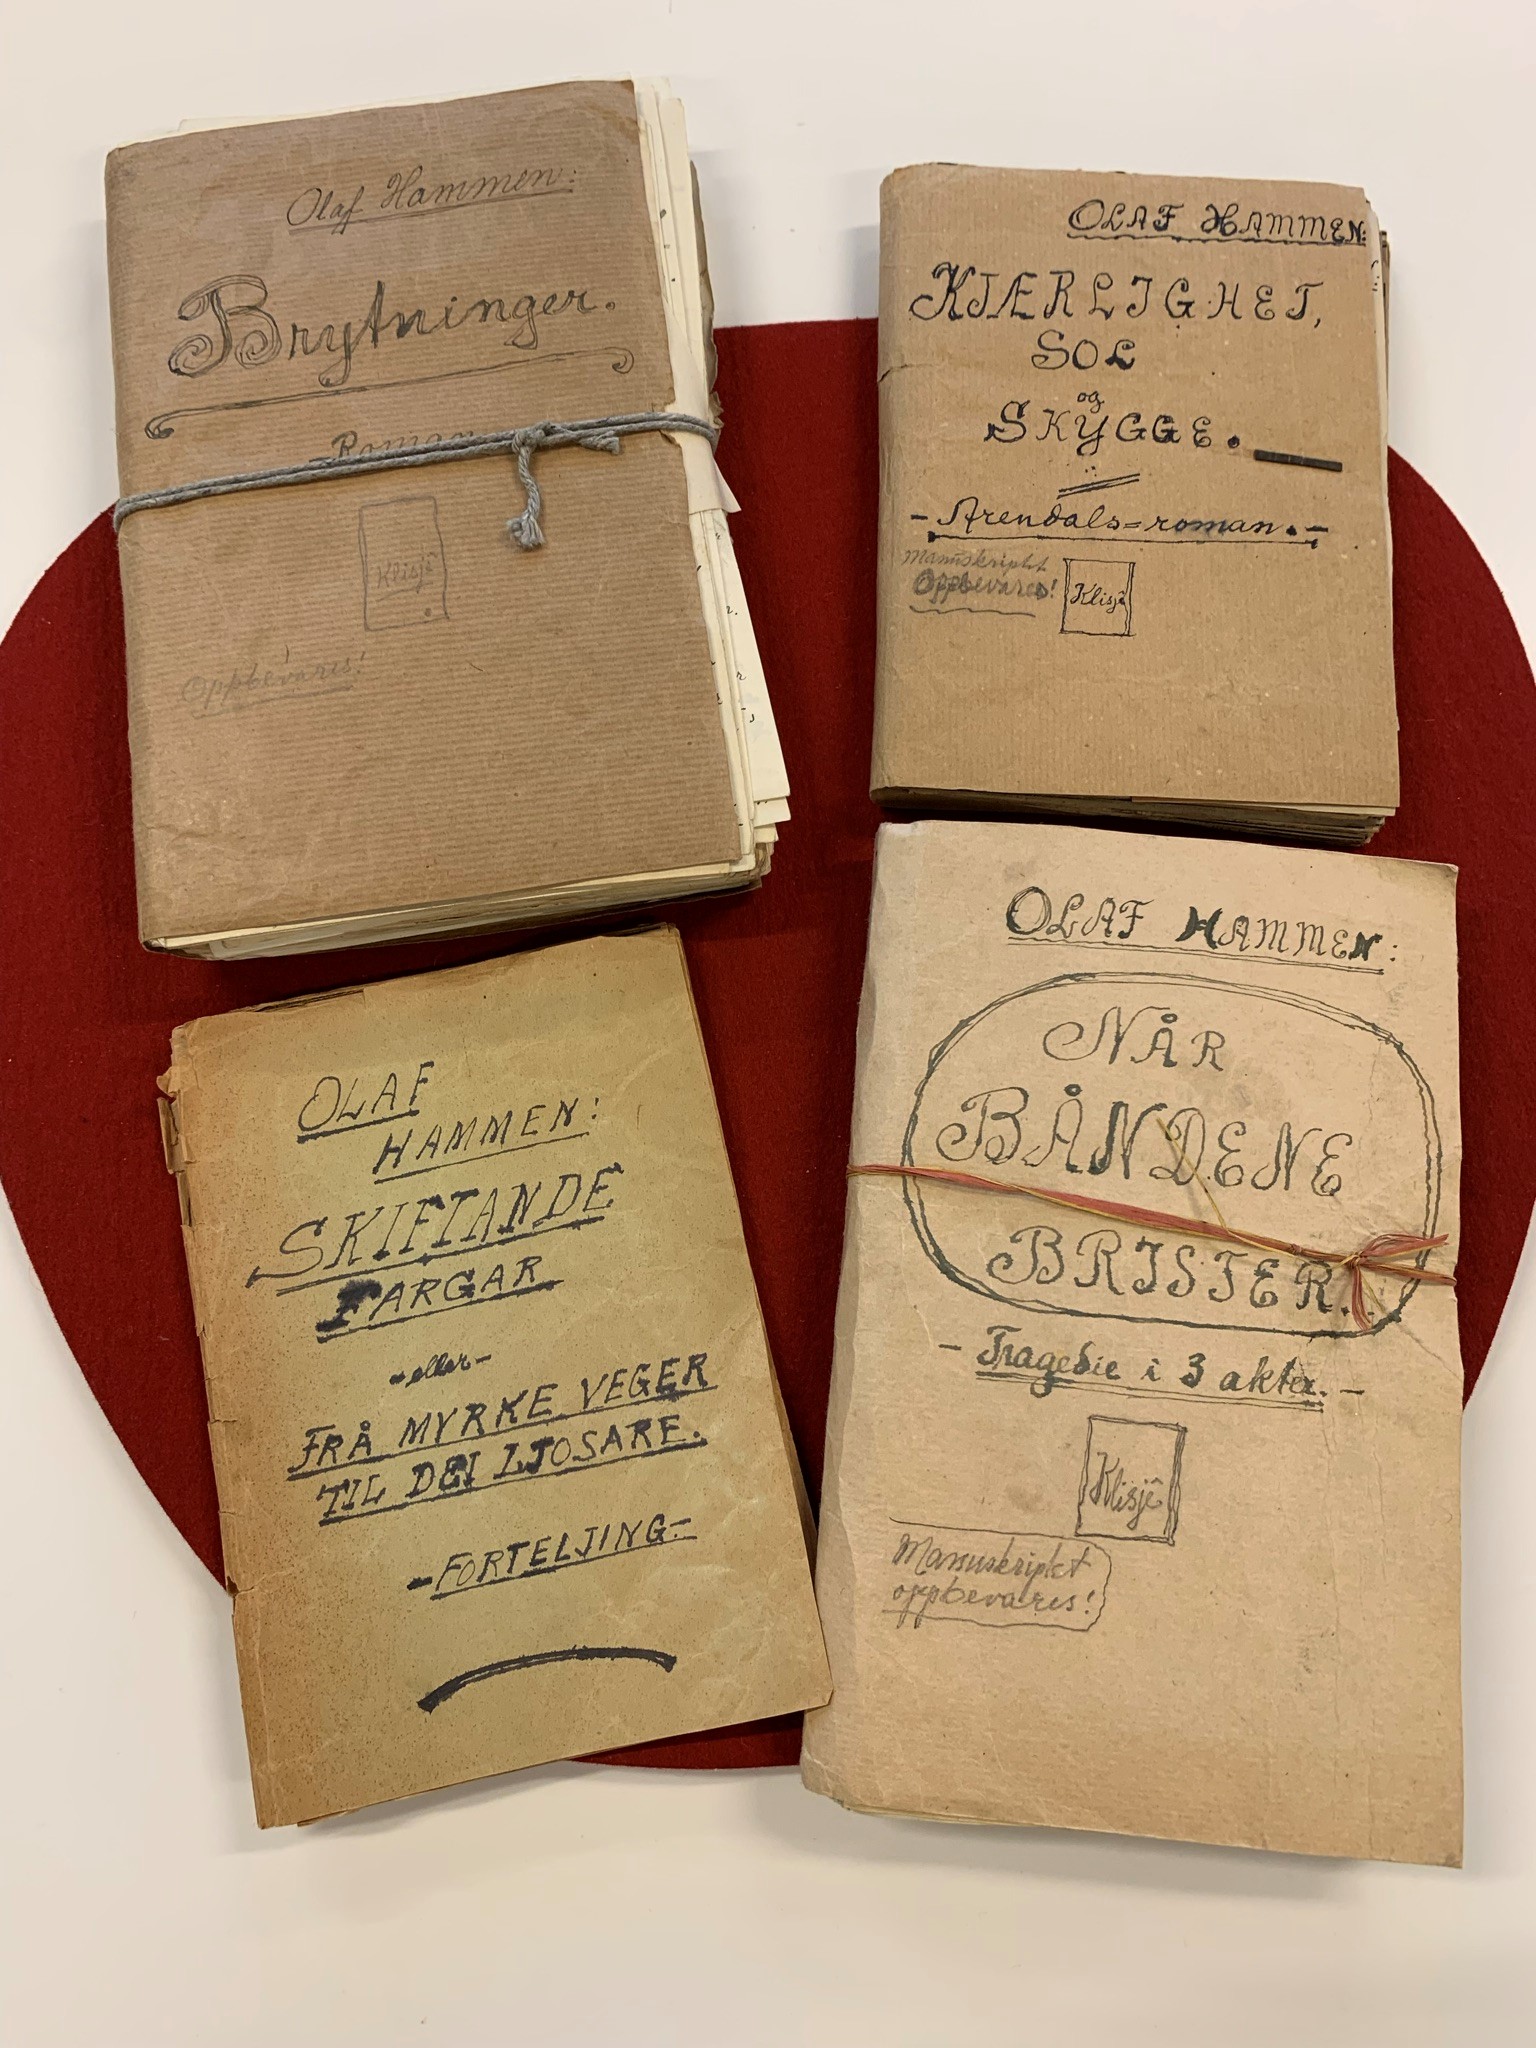 Olaf Hammen:
Brytninger.
- Roman
Klisjê
Oppbevares!
OLAF HAMMEN:
KJÆRLIGHET,
SOL
og
SKYGGE.
- Arendals=roman. -
Manuskriptet
Oppbevares!
Klisjê
OLAF
HAMMEN:
SKIFTANDE
FARGAR
- eller -
FRÅ MYRKE VEGER
TIL DEI LJOSARE.
- FORTELJING -
OLAF HAMMEN:
NÅR
BÅNDENE
BRISTER.
- Tragedie i 3 akter. -
Klisjê
Manuskriptet
oppbevares!